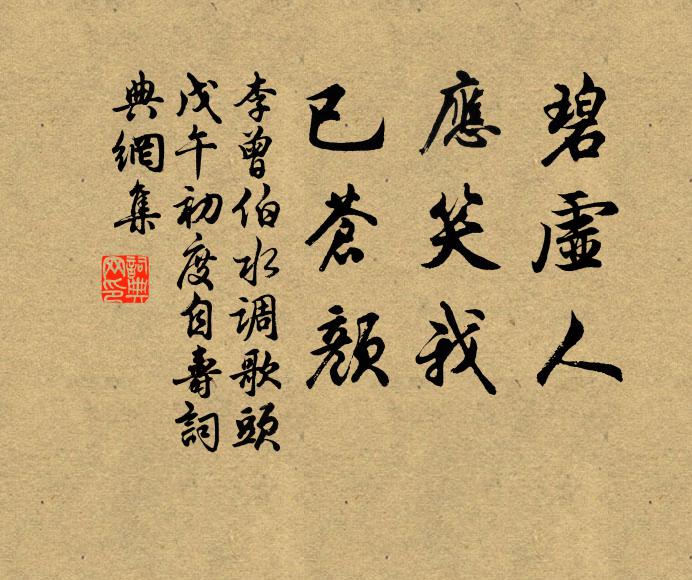 碧虛人
應笑我
已蒼顏
李曾伯水调歌頭
戊午初度自壽詞
典網集
詞典
网印